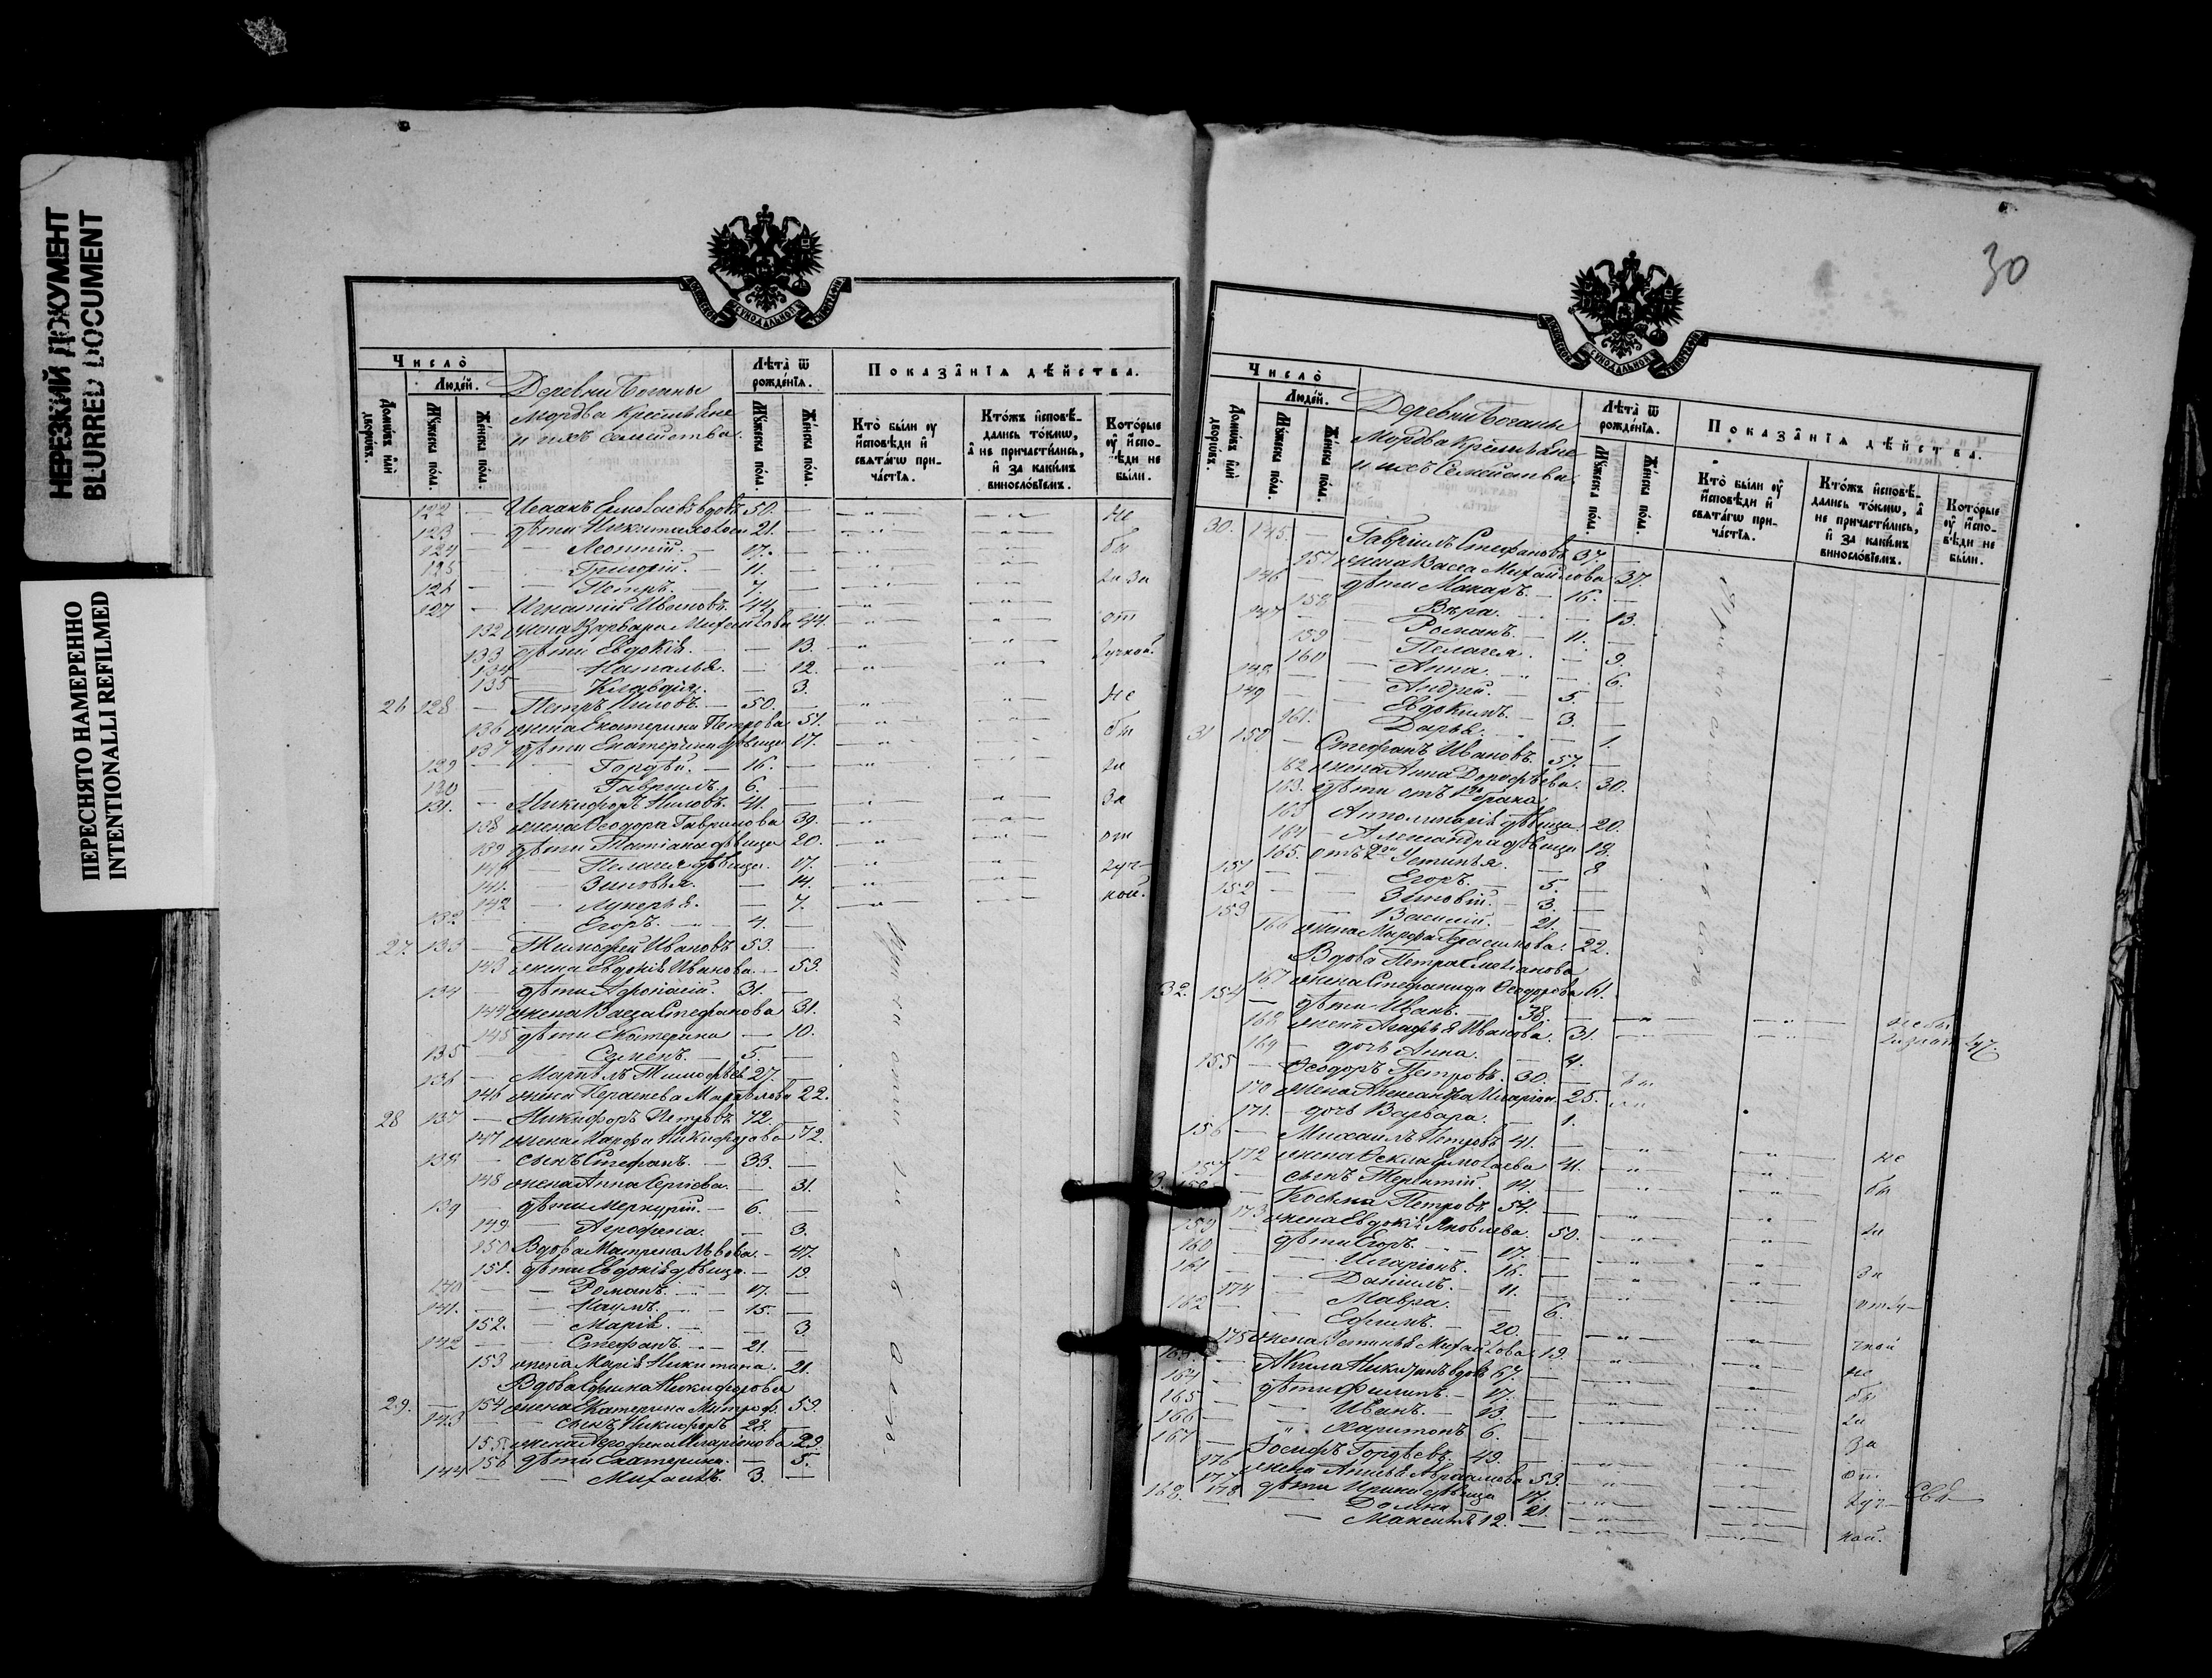 НЕРЕЗКИЙ ДОКУМЕНТ
BLURRED DOCUMENT
ПЕРЕСНЯТО НАМЕРЕННО
INTENTIONALI REFILMED
Число̀
Людей.
Домѡвъ или дворѡвъ.
Мужеска пола.
Женска пола.
Деревни Боганы
Мордва крестьяне
и ихъ семейства.
Лѣта̀ ѿ рожденїѧ.
Мужеска пола.
Женска пола.
Показанїѧ дѣйства.
Кто̀ были ꙋ исповѣди и свѧтагѡ причастїѧ.
Ктожъ исповѣдались токмѡ, а не причастились, и за какимъ винословїемъ.
Которые ꙋ исповѣди не были.
122 — 50. — Не
123 — дѣти 21. — бы
124 — Леонтій. — 17. —
125 — Григорій. — 11. — ли За
126 — Петръ. — 7. —
127 — Игнатій Ивановъ. 44. — от
132 жена Варвара Михайлова 44.
133 дѣти Евдокія. — 13. лучкой
134 Наталья. — 12.
135 Клавдія. — 3.
26 128 — Петръ Ниловъ. — 50. — Не
136 жена Екатерина Петрова 51. бы
137 дѣти Екатерина дѣвица 17.
129 — Гордѣй. — 16. — ли
130 — Гавріилъ. 6. —
131. — Никифоръ Ниловъ. 41. — За
138 жена Ѳеодора Гаврилова 39.
139 дѣти Татіана дѣвица 20. от
140 Пелагія дѣвица. 17.
141. Зиновья. — 14. луч
142 Лукерья. — 7. кой.
132 Егоръ. — 4. —
27. 133 — Тимофей Ивановъ 53. —
143 жена Евдокія Иванова. — 53.
134 — дѣти Афонасій. 31. —
144 жена Васса Стефанова 31.
145 дѣти Екатерина — 10.
135 — Семенъ. — 5. —
136 — Тимофеевъ 27. —
146 жена Параскева 22.
28 137 — Никифоръ Петровъ 72. —
147 жена Марфа Никифорова 72.
138 — сынъ Стефанъ. — 33. —
148 жена Анна Сергіева. — 31.
139 — дѣти Меркурій. — 6. —
149 — Агрофена. — 3.
150 Вдова Матрена Львова. — 47.
151. дѣти Евдокія дѣвица. — 19.
140 — Романъ. — 17. —
141. — Наумъ. — 15. —
152. — Марія. — 3.
142 — Стефанъ. — 21. —
153 жена Марія Никитина. 21.
Вдова Ефима Никифорова
29. — 154 жена Екатерина Митроф. 59.
143 — сынъ Никифоръ 28. —
155. жена Агрофена Иларіонова 29.
156 дѣти Екатерина. — 5.
144 — Михаилъ. 3. —
30
Число̀
Людей.
Домѡвъ или дворѡвъ.
Мужеска пола.
Женска пола.
Деревни Боганы
Мордва Крестьяне
и ихъ Семейства.
Лѣта̀ ѿ рожденїѧ.
Мужеска пола.
Женска пола.
Показанїѧ дѣйства.
Кто̀ были ꙋ исповѣди и свѧтагѡ причастїѧ.
Ктожъ исповѣдались токмѡ, а не причастились, и за какимъ винословїемъ.
Которые ꙋ исповѣди не были.
30. 145. — Гавріилъ Стефановъ 37. —
157 жена Васса Михайлова 37.
146 — дѣти Макаръ. — 16. —
158 Вѣра. — 13.
147 — Романъ. — 11. —
159 Пелагея. — 9.
160 Анна. — 6.
148 — Андрей. — 5. —
149 — Евдокимъ. — 3. —
161. Дарья. — 1.
31 150 — Стефанъ Ивановъ. 57. —
162 жена Анна Дорофѣева. 30.
163. дѣти отъ 1го брака
163 Апполинарія дѣвица. 20.
164 — Александра дѣвица 18.
165. отъ 2го Устинья. — 8
151 — Егоръ. — 5. —
152 — Зиновій. — 3. —
153 — Василій. — 21. —
166 жена Марфа Герасимова. 22.
Вдова Петра
167 жена Стефанида Ѳеодорова 61.
32. 154 — дѣти Иванъ. — 38. —
168 жена Агафья Иванова. 31.
169 — дочь Анна. — 4.
155 — Ѳеодоръ Петровъ. 30. —
170 жена Александра Иларіон. 25.
171. — дочь Варвара. — 1.
156 — Михаилъ Петровъ 41. — Не
172 жена Ѳекла 41.
157 — сынъ Терентій. 14. — бы
— Косьма Петровъ 54. —
173 жена Евдокія Яковлева. 50. ли
159 — дѣти Егоръ. — 17. —
160 — Иларіонъ. 16. — За
161 — Даніилъ. — 11. —
174 — Мавра. — 6. отлу-
162 — Ефимъ. — 20. —
175 жена Устинья Михайлова. 19. чкой
163. — вдовъ 67. — Не
164 — дѣти Филипъ. — 17. — бы
165 — Иванъ. — 13. — ли
166 — Харитонъ 6. — За
167 — Іосифъ Гордѣевъ. 49. —
176 жена Авраамова 53. от
177 дѣти Ирина дѣвица 17. луч-
178 — Домна 21.
168. — Максимъ 12. — кой.